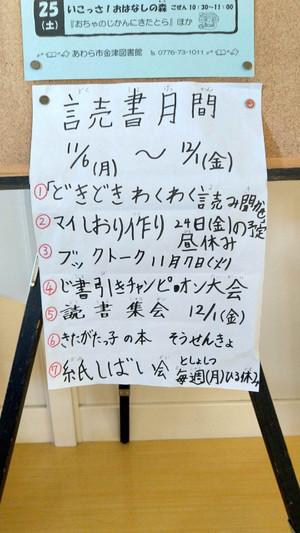 25
(土)
いこっさ!おはなしの森 ごぜん 10:30~11:00
『おちゃのじかんにきたとら』ほか
あわら市金津図書館 ℡ 0776-73-1011
読書月間
11/6(月) ~ 12/1(金)
①「どきどきわくわく読み聞かせ
②マイしおり作り 24日(金)の予定
昼休み
③ブックトーク 11月7日(火)
④じ書引きチャンピオン大会
⑤読書集会 12/1(金)
⑥きたがたっ子の本 そうせんきょ
としょしつ
⑦紙しばい会 毎週(月)ひる休み